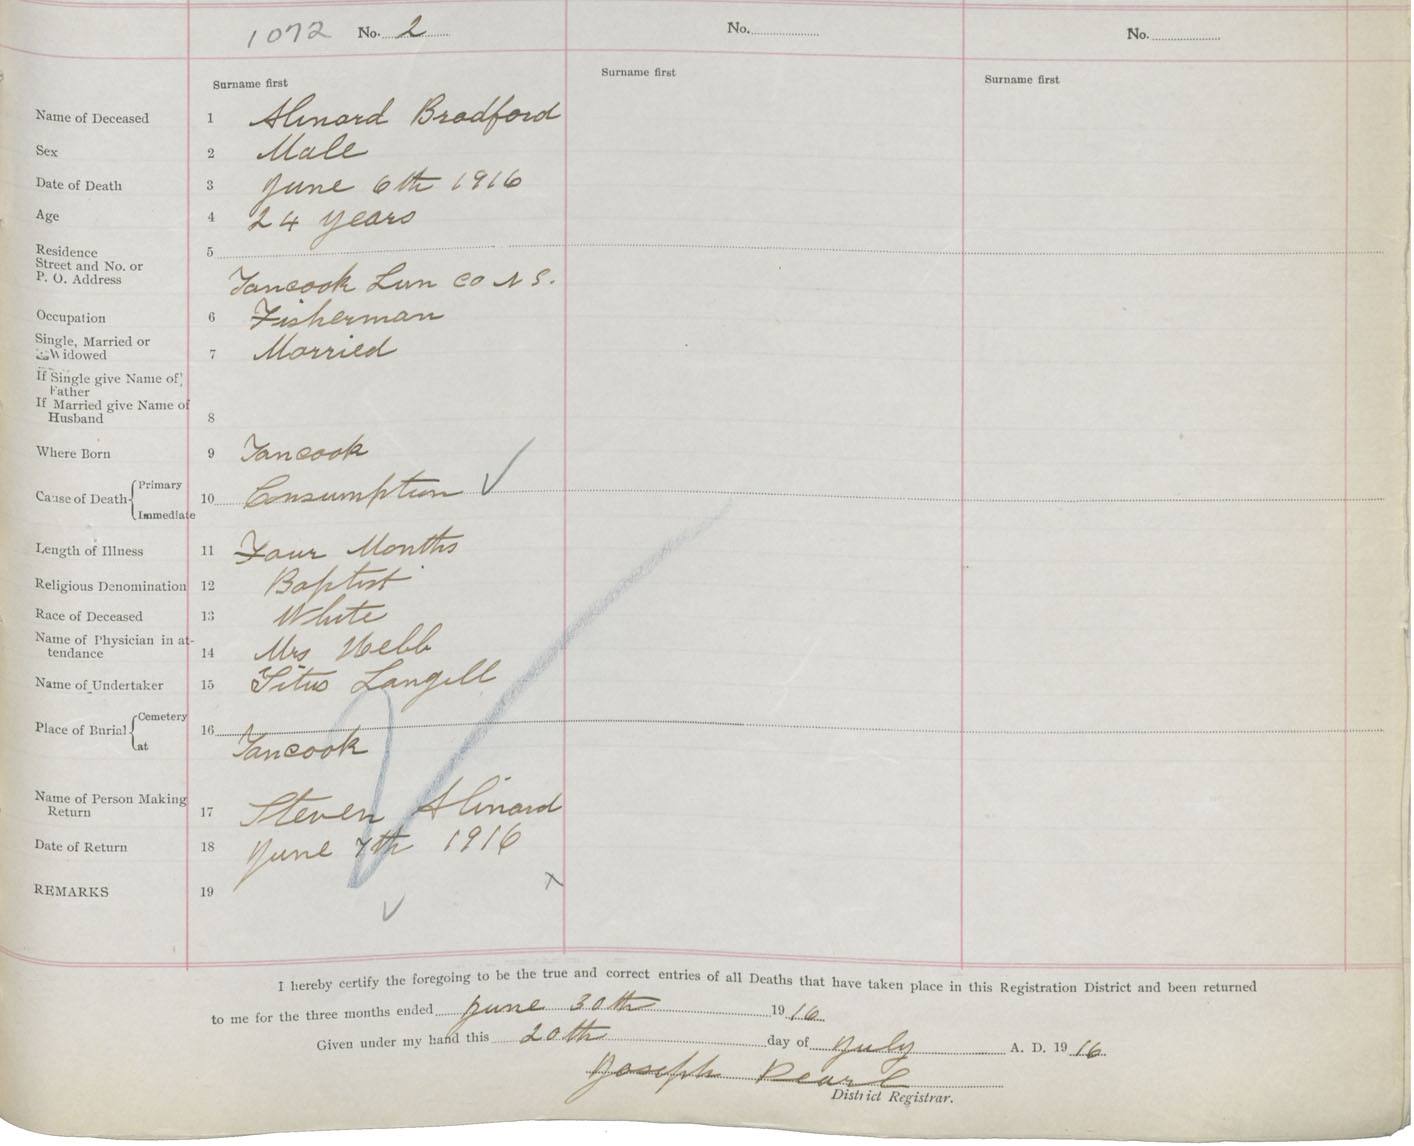 1072 No. 2 No. No.
Surname first Surname first Surname first
Name of Deceased 1 Slinard Bradford
Sex 2 Male
Date of Death 3 June 6th 1916
Age 4 24 years
Residence 5
Street and No. or
P. O. Address Tancook Lun Co N S.
Occupation 6 Fisherman
Single, Married or
Widowed 7 Married
If Single give Name of
Father
If Married give Name of
Husband 8
Where Born 9 Tancook
Cause of Death Primary 10 Consumption ✓
Immediate
Length of Illness 11 Four Months
Religious Denomination 12 Baptist
Race of Deceased 13 White
Name of Physician in at-
tendance 14 Mrs Webb
Name of Undertaker 15 Titus Langill
Place of Burial Cemetery 16
at Tancook
Name of Person Making
Return 17 Steven Slinard
Date of Return 18 June 7th 1916
REMARKS 19
I hereby certify the foregoing to be the true and correct entries of all Deaths that have taken place in this Registration District and been returned
to me for the three months ended June 30th 1916
Given under my hand this 20th day of July A. D. 1916
Joseph Pearl
District Registrar.